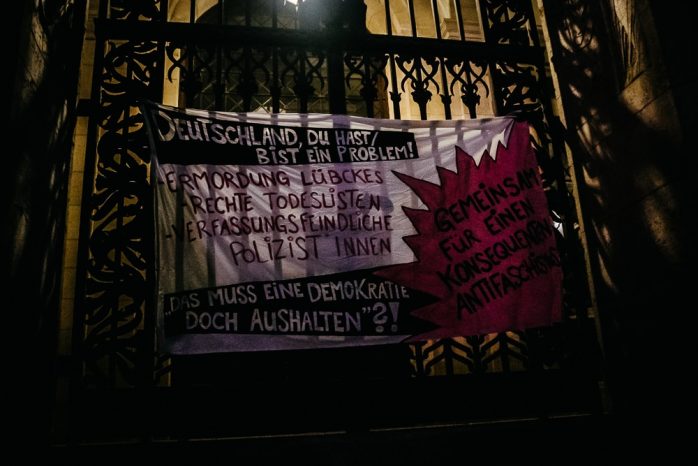 DEUTSCHLAND, DU HAST/
BIST EIN PROBLEM!
-ERMORDUNG LÜBCKES
-RECHTE TODESLISTEN
-VERFASSUNGSFEINDLICHE
POLIZIST*INNEN
„DAS MUSS EINE DEMOKRATIE
DOCH AUSHALTEN"?!
GEMEINSAM
FÜR EINEN
KONSEQUENTEN
ANTIFASCHISMUS